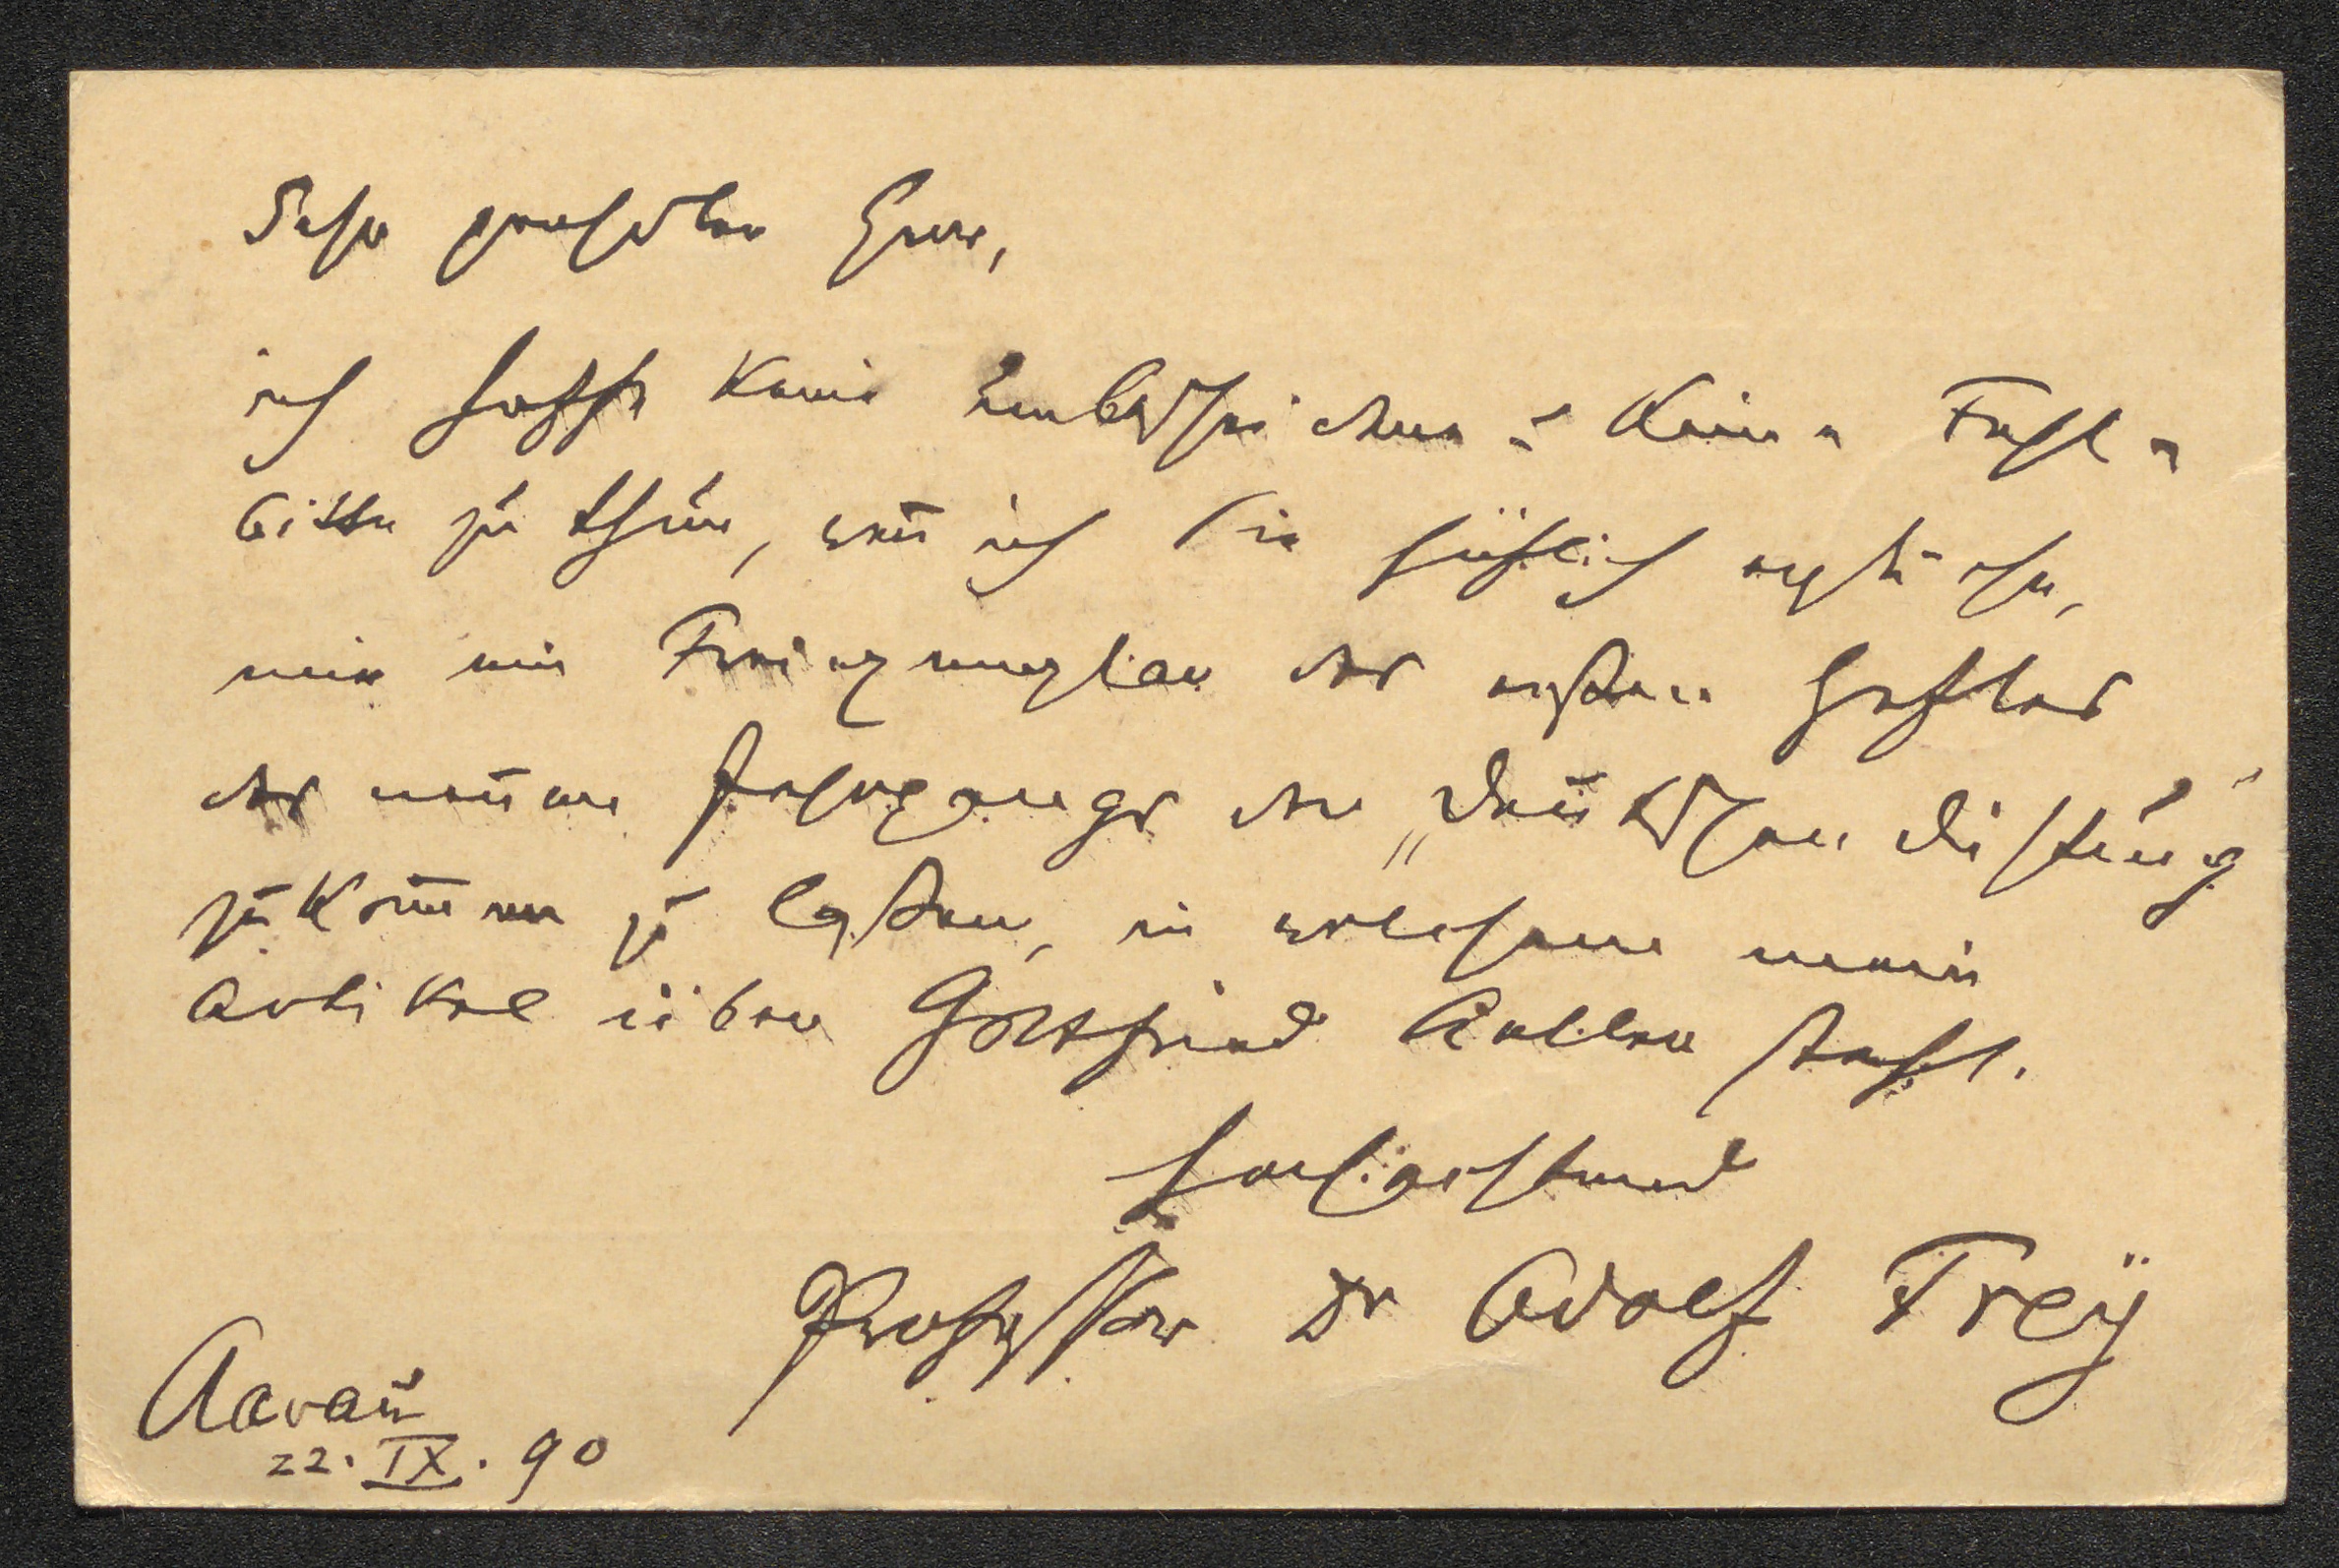 Sehr geehrter Herr,
ich hoffe keine unbescheidene u keine Fehl-
bitte zu thun, wenn ich Sie höflich ersuche,
mir ein Freiexemplar des ersten Heftes
des neuen Jahrgangs der „Deutschen Dichtung"
zukommen zu lassen, in welchem mein
Artikel über Gottfried Keller steht.
Hochachtend
Professor Dr Adolf Frey
Aarau
22. IX. 90